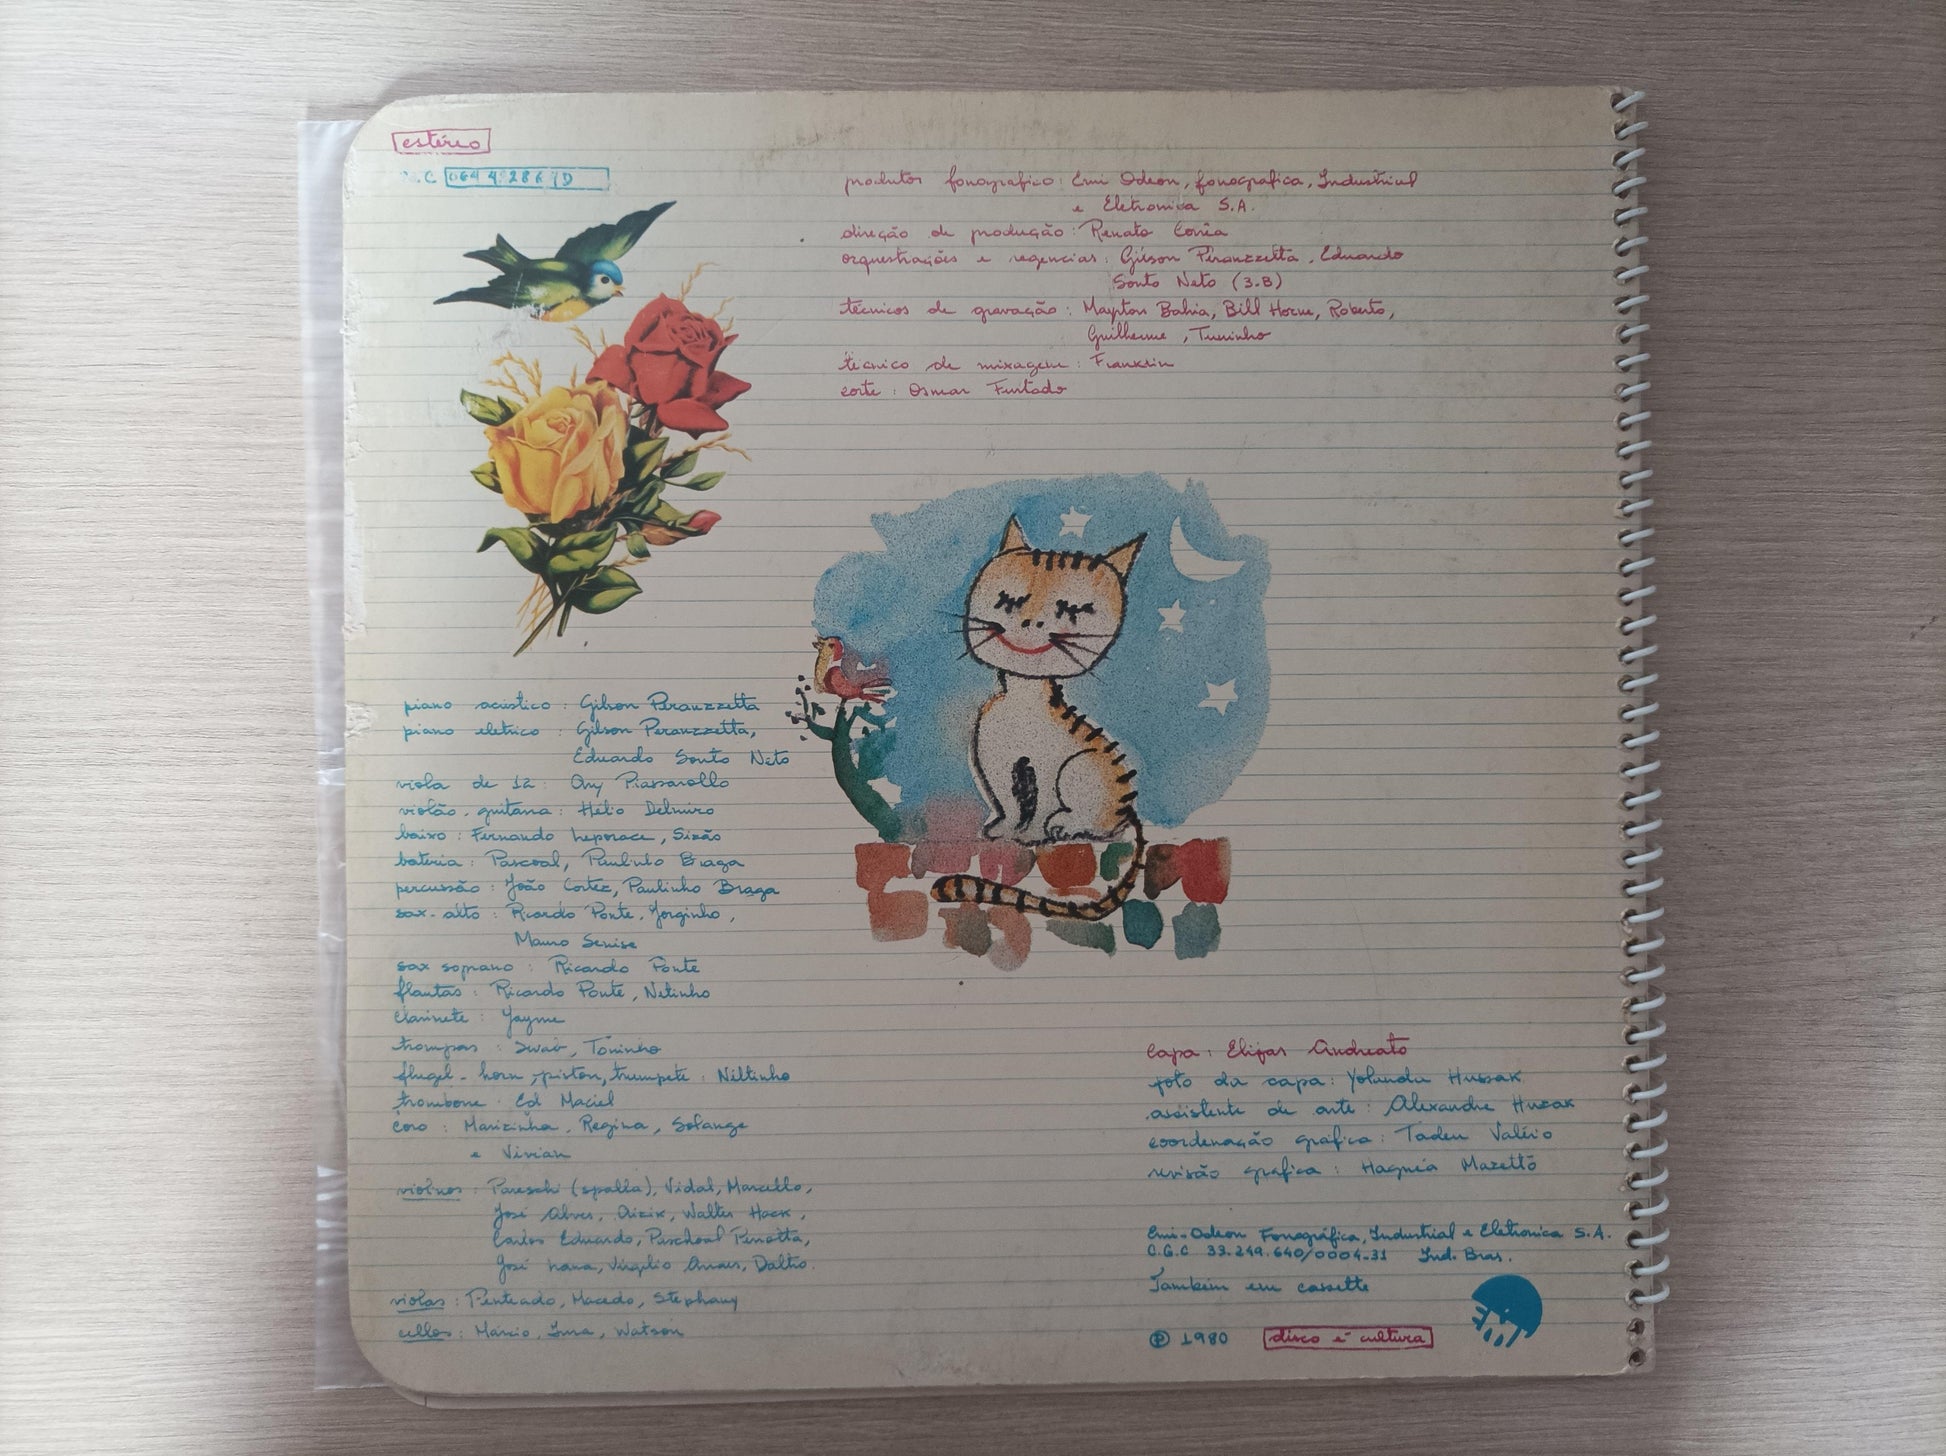 estéreo
064 4
produtor fonografico: Emi Odeon, fonografica, Industrial
e Eletronica S.A.
direção de produção: Renato Corrêa
orquestrações e regencias: Gilson Peranzzetta, Eduardo
Souto Neto (3.B)
técnicos de gravação: Mayrton Bahia, Bill Horne, Roberto,
Guilherme, Tuninho
técnico de mixagem: Franklin
corte: Osmar Furtado
piano acústico: Gilson Peranzzetta
piano eletrico: Gilson Peranzzetta,
Eduardo Souto Neto
viola de 12: Ary Piassarollo
violão. guitarra: Hélio Delmiro
baixo: Fernando Leporace, Sizão
bateria: Pascoal, Paulinho Braga
percussão: João Cortez, Paulinho Braga
sax-alto: Ricardo Ponte, Jorginho,
Mauro Senise
sax soprano: Ricardo Ponte
flautas: Ricardo Ponte, Netinho
clarinete: Jayme
trompas: Svab, Toninho
flugel-horn, piston, trumpete: Niltinho
trombone: Ed Maciel
coro: Marizinha, Regina, Solange
e Vivian
violinos: Pareschi (spalla), Vidal, Marcello,
José Alves, Aizik, Walter Hack,
Carlos Eduardo, Paschoal Perrotta,
José Lana, Virgilio Arraes, Daltro.
violas: Penteado, Macedo, Stephany
cellos: Márcio, Iura, Watson
capa: Elifas Andreato
foto da capa: Yolanda Huzsak
assistente de arte: Alexandre Huzak
coordenação gráfica: Tadeu Valério
revisão grafica: Mazetto
Emi-Odeon Fonográfica, Industrial e Eletronica S.A.
C.G.C 33.249.640/0004-31 Ind. Bras.
Tambem em cassette
℗ 1980 disco é cultura